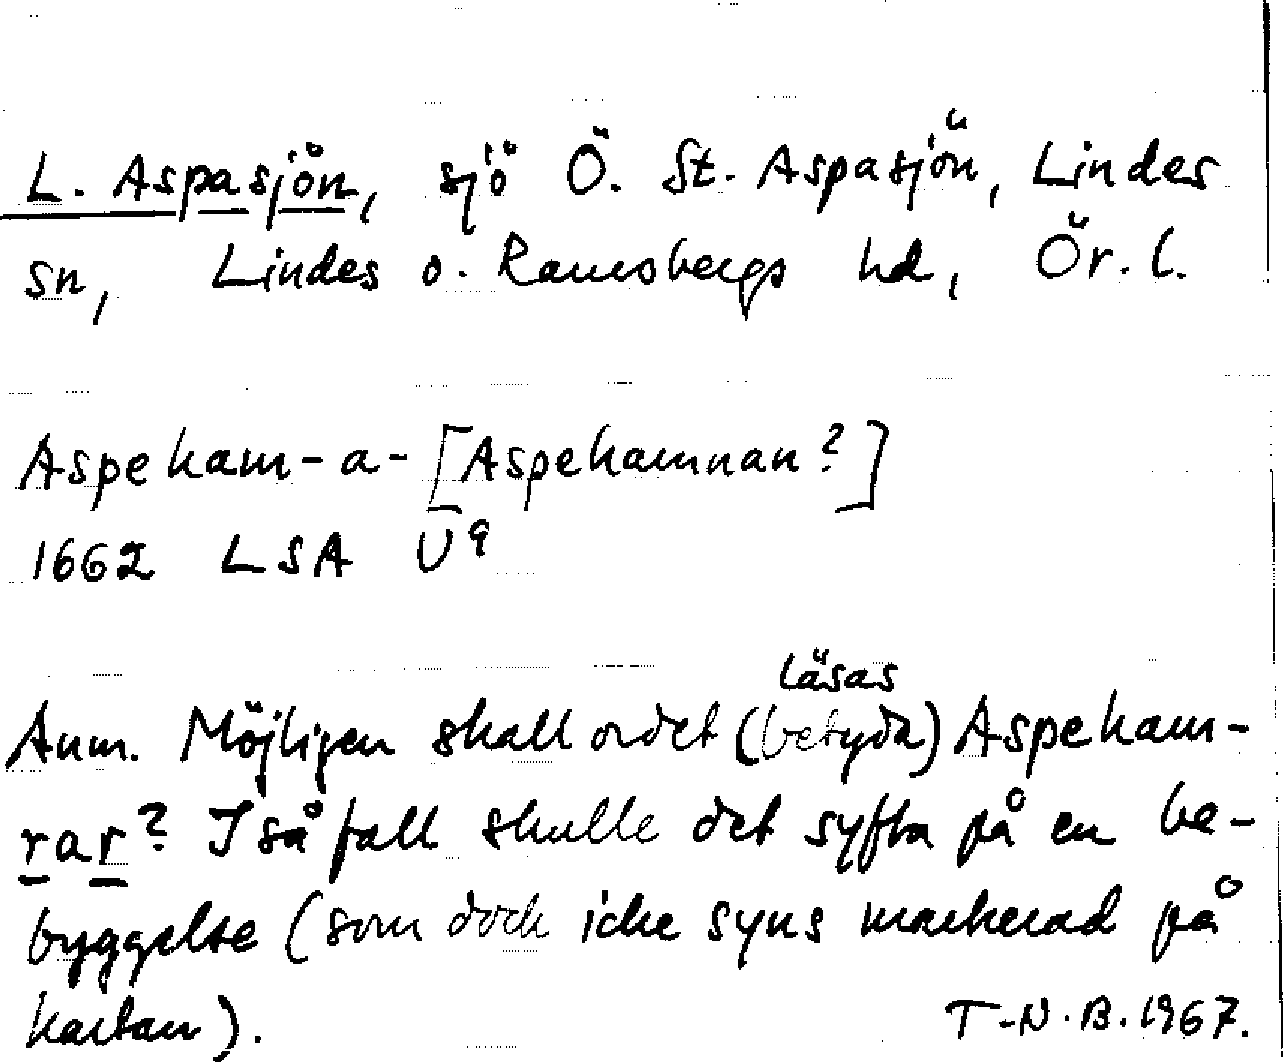 L. Aspasjön, sjö Ö. St. Aspasjön, Lindes
sn, Lindes o. Ramsbergs hd, Ör. l.
Aspeham-a- [Aspehamnan?]
1662 LSA U9
läsas
Anm. Möjligen skall ordet (betyda) Aspeham-
rar? I så fall skulle det syfta på en be-
byggelse (som dock icke syns markerad på
kartan). T-N.B. 1967.